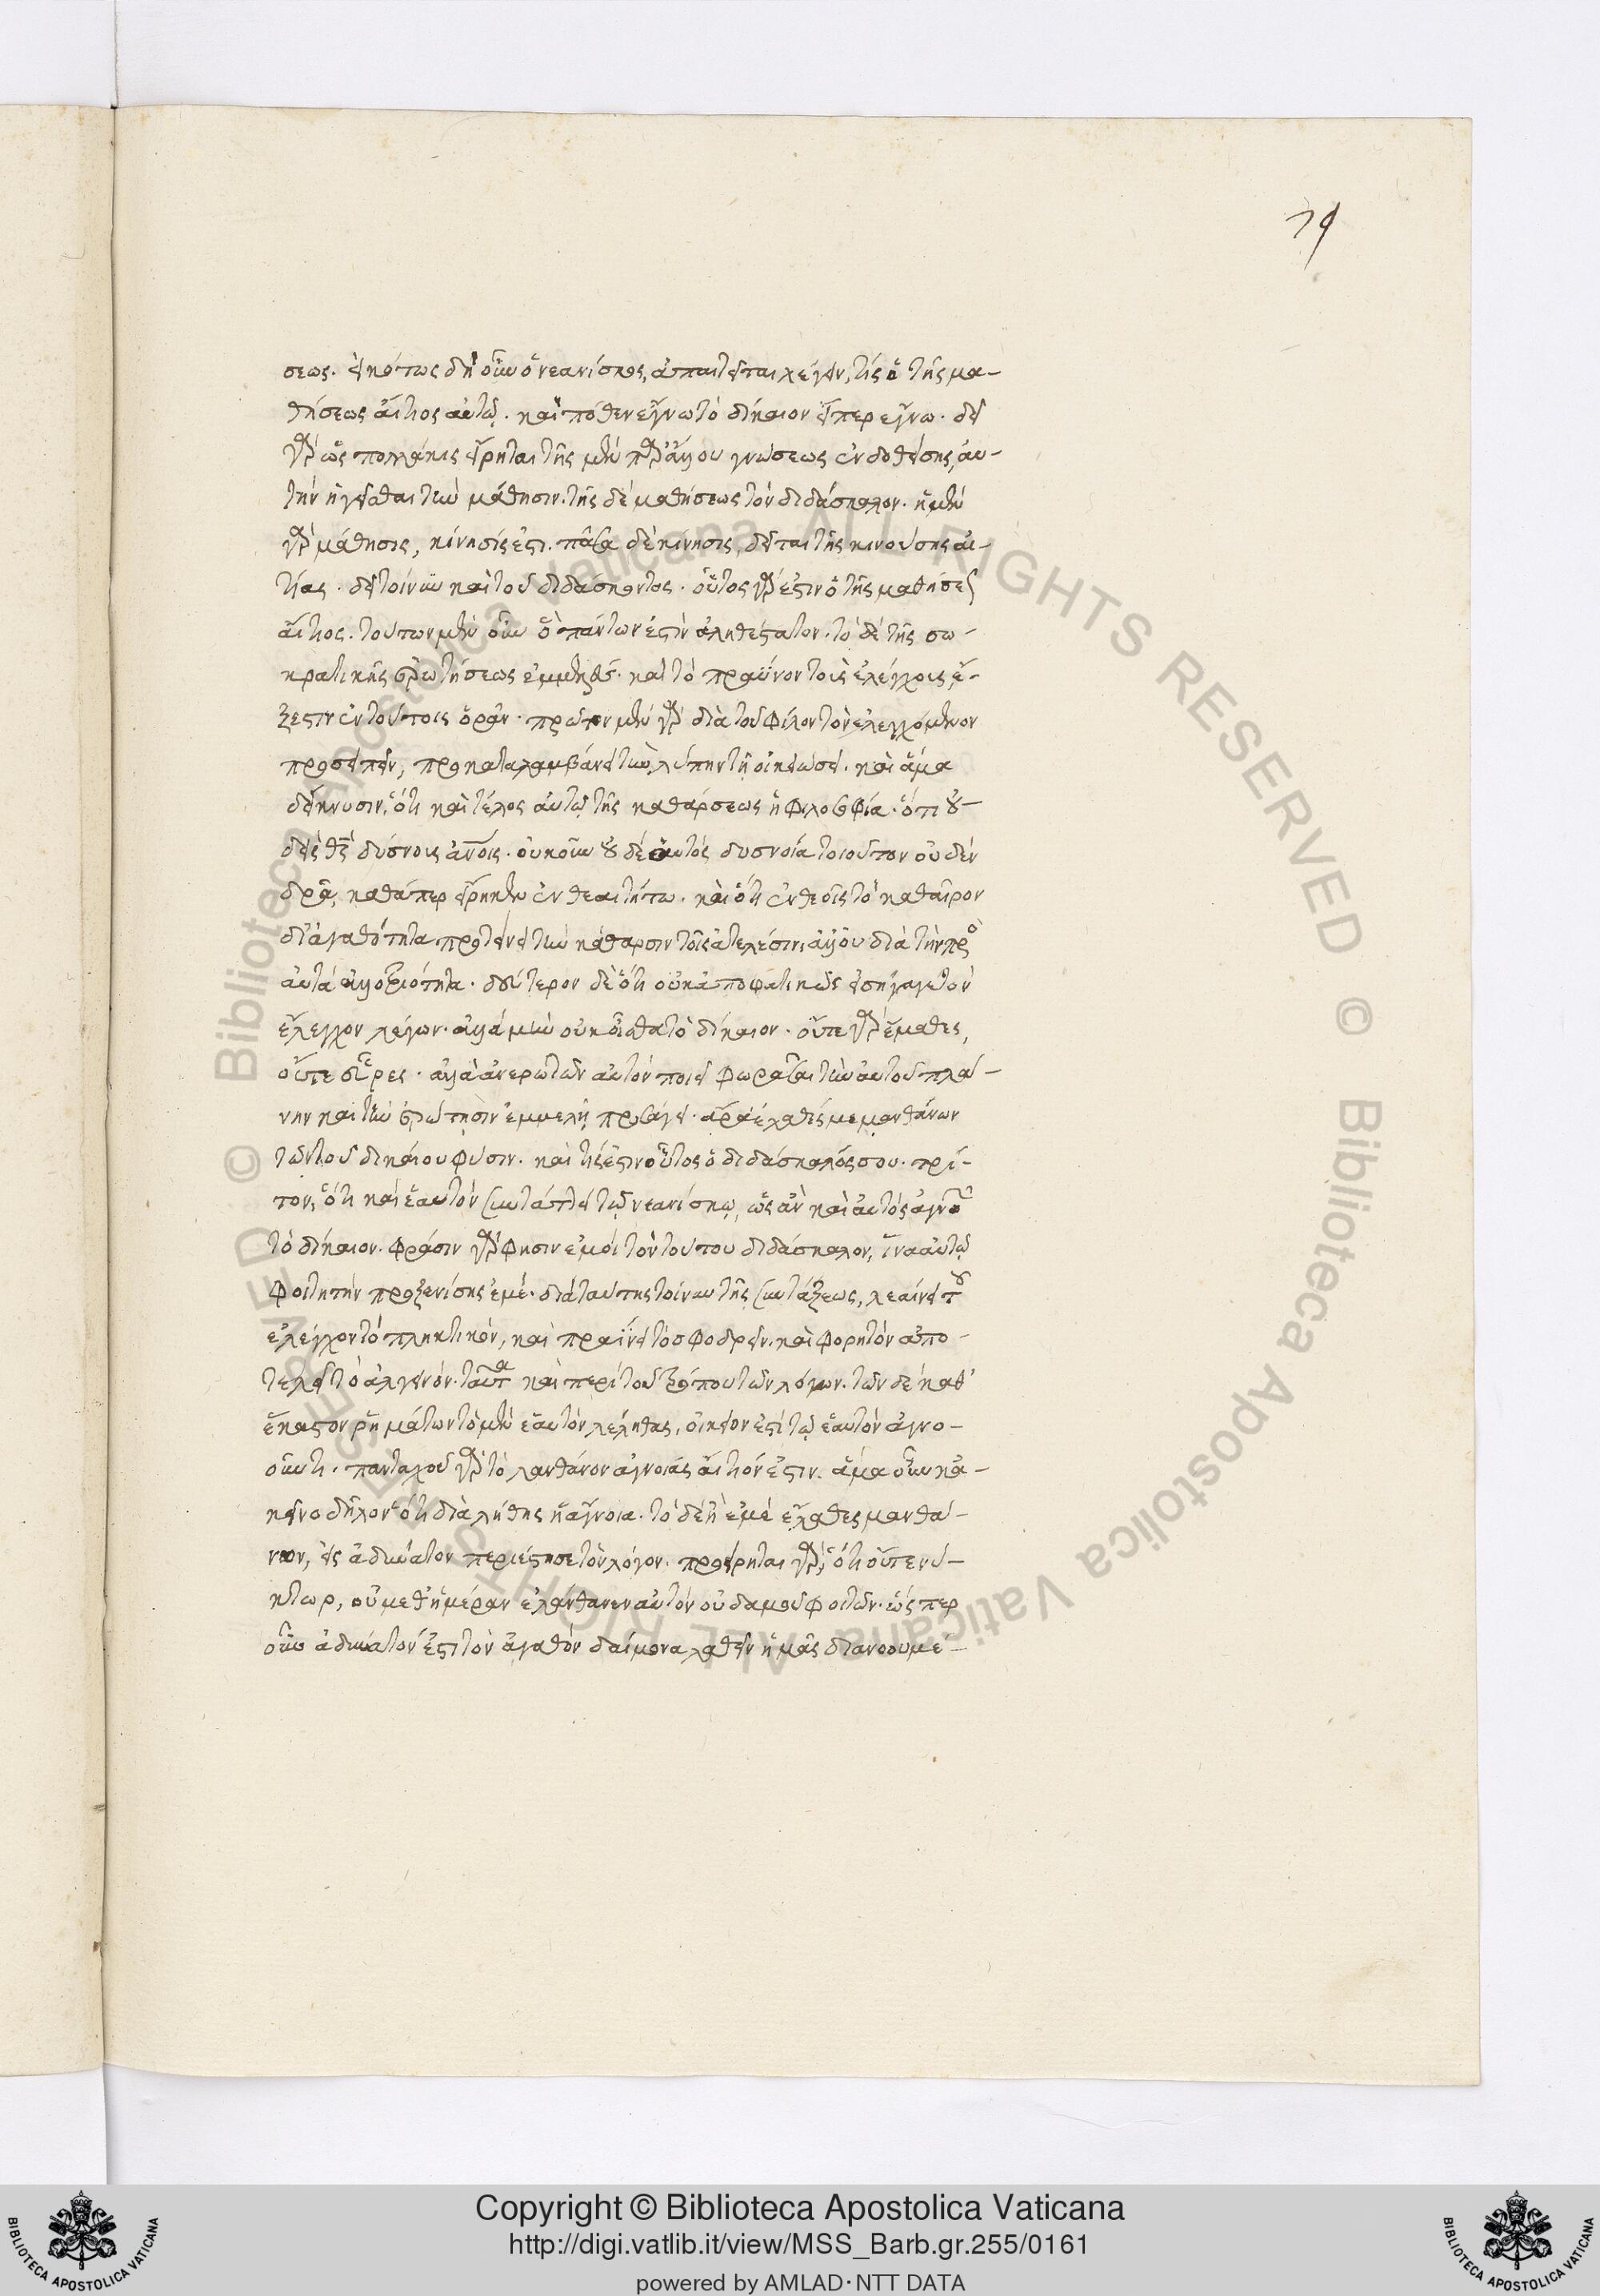 79
σεως. εἰκότως δὴ οὖν ὁ νεανίσκος, ἀπαιτεῖται λέγειν, τίς ὁ τῆς μα-
θήσεως αἴτιος αὐτῷ. καὶ πόθεν ἔγνω τὸ δίκαιον εἴπερ ἔγνω. δεῖ
γὰρ ὡς πολλάκις εἴρηται τῆς μὲν παρ' ἄλλου γνώσεως ἐνδοθείσης, αὐ-
τὴν ἡγεῖσθαι τὴν μάθησιν. τῆς δὲ μαθήσεως τὸν διδάσκαλον. ἡ μὲν
γὰρ μάθησις, κίνησίς ἐστι. πᾶσα δὲ κίνησις, δεῖται τῆς κινούσης αἰ-
τίας. δεῖ τοίνυν καὶ τοῦ διδάσκοντος. οὗτος γάρ ἐστιν ὁ τῆς μαθήσεως
αἴτιος. τοῦτον μὲν οὖν ὃ πάντων ἐστὶν ἀληθέστατον. τὸ δὲ τῆς σω-
κρατικῆς ἐρωτήσεως ἐμμελὲς. καὶ τὸ πραΰνον τοῖς ἐλέγχοις ἔ-
ξεστιν ἐν τούτοις ὁρᾶν. πρῶτον μὲν γὰρ διὰ τοῦ φίλον τὸν ἐλεγχόμενον
προσειπεῖν, προκαταλαμβάνει τὴν λύπην τῇ οἰκειώσει. καὶ ἅμα
δείκνυσιν, ὅτι καὶ τέλος αὐτῷ τῆς καθάρσεως ἡ φιλοσοφία. ὅτι οὐ-
δεὶς θεὸς δύσνους ἀνθρώποις. οὐκοῦν οὐδὲ αὐτὸς δυσνοίᾳ τοιοῦτον οὐδὲν
δρᾷ, καθάπερ εἴρηκεν ἐν θεαιτήτῳ. καὶ ὅτι ἐν θεοῖς τὸ καθαῖρον
δι' ἀγαθότητα προτείνει τὴν κάθαρσιν τοῖς ἀτελέσιν, ἀλλ' οὐ διὰ τὴν πρὸς
αὐτὰ ἀλλοτριότητα. δεύτερον δὲ ὅτι οὐκ ἀποφατικῶς εἰσήγαγε τὸν
ἔλεγχον λέγων. ἀλλὰ μὴν οὐκ οἶσθα τὸ δίκαιον. οὔτε γὰρ ἔμαθες,
οὔτε εὗρες. ἀλλὰ ἀνερωτῶν αὐτὸν ποιεῖ φωρᾶσαι τὴν αὐτοῦ πλά-
νην καὶ τὴν ἐρώτησιν ἐμμελῆ προσάγει. ἆρα ἔλαθές με μανθάνων
τὴν τοῦ δικαίου φύσιν. καὶ τίς ἐστιν οὗτος ὁ διδάσκαλός σου. τρί-
τον, ὅτι καὶ ἑαυτὸν συντάττει τῷ νεανίσκῳ, ὡς ἂν καὶ αὐτὸς ἀγνοῶν
τὸ δίκαιον. φράσον γὰρ φησὶν ἐμοὶ τὸν τούτου διδάσκαλον, ἵνα αὐτῷ
φοιτητὴν προξενίσῃς ἐμέ. διὰ ταύτης τοίνυν τῆς συντάξεως, λεαίνει τοῦ
ἐλέγχου τὸ πληκτικὸν, καὶ πραΰνει τὸ σφοδρὸν. καὶ φορητὸν ἀπο-
τελεῖ τὸ ἀλγεινόν. ταῦτα καὶ περὶ τοῦ τρόπου τῶν λόγων. τῶν δὲ καθ'
ἕκαστον ῥημάτων τὸ μὲν ἑαυτὸν λέληθας, οἰκεῖον ἐστὶ τῷ ἑαυτὸν ἀγνο-
οῦντι. πανταχοῦ γὰρ τὸ λανθάνον ἀγνοίας αἴτιόν ἐστιν. ἅμα οὖν κἀ-
κεῖνο δῆλον ὅτι διὰ λήθης ἡ ἄγνοια. τὸ δὲ ἢ ἐμὲ ἔλαθες μανθά-
νων, εἰς ἀδύνατον περιέστησε τὸν λόγον. προείρηται γὰρ, ὅτι οὔτε νύ-
κτωρ, οὐ μεθ' ἡμέραν ἐλάνθανεν αὐτὸν οὐδαμοῦ φοιτῶν. ὥσπερ
οὖν ἀδύνατόν ἐστι τὸν ἀγαθὸν δαίμονα λαθεῖν ἡμᾶς διανοουμέ-
Copyright © Biblioteca Apostolica Vaticana
http://digi.vatlib.it/view/MSS_Barb.gr.255/0161
powered by AMLAD·NTT DATA
BIBLIOTECA APOSTOLICA VATICANA
BIBLIOTECA APOSTOLICA VATICANA
© Biblioteca Apostolica Vaticana ALL RIGHTS RESERVED © Biblioteca Apostolica Vaticana ALL RIGHTS RESERVED